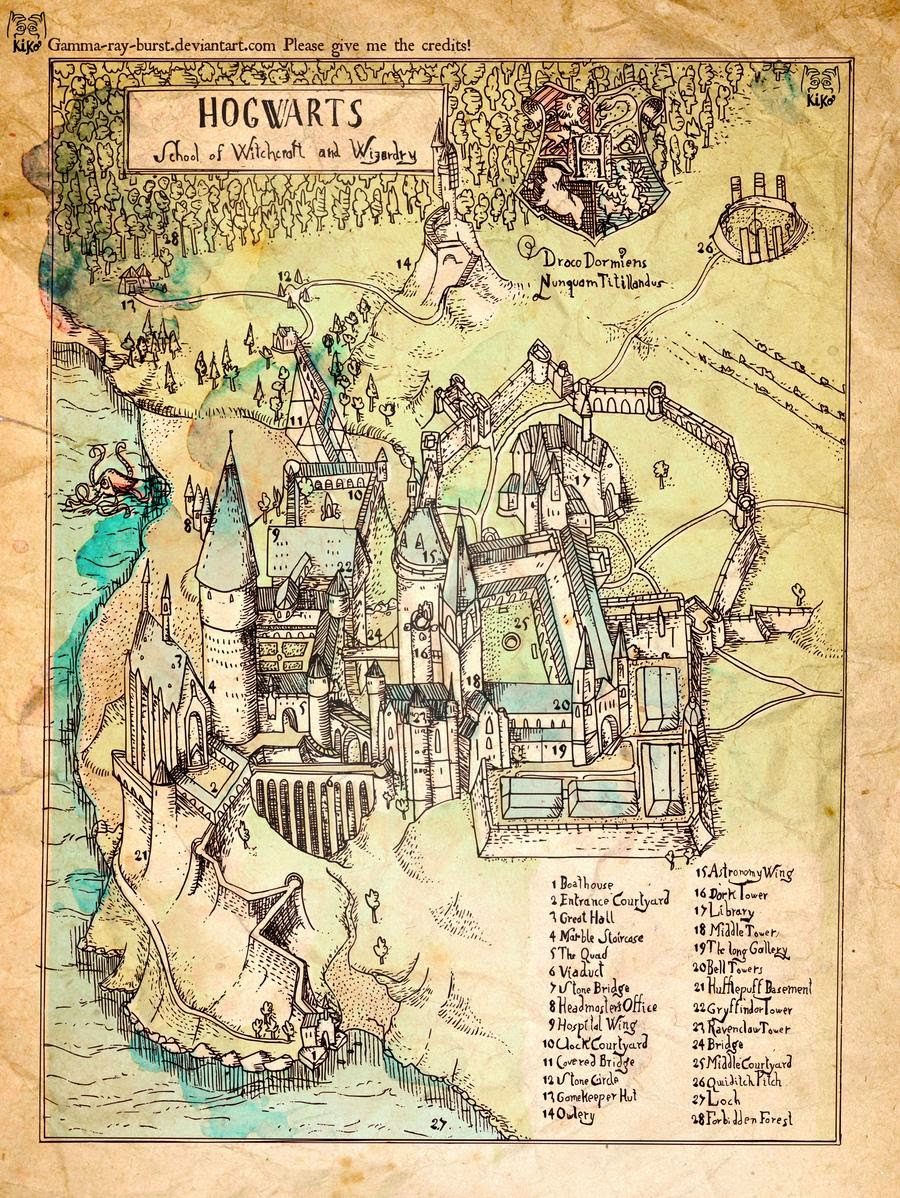 KiKo Gamma-ray-burst.deviantart.com Please give me the credits!
KiKo
HOGWARTS
School of Witchcraft and Wizardry
H
Draco Dormiens
Nunquam Titillandus
28
26
14
12
13
11
10
17
8
9
15
22
24
25
16
3
4
18
5
20
23
19
2
21
27
1 Boathouse
2 Entrance Courtyard
3 Great Hall
4 Marble Staircase
5 The Quad
6 Viaduct
7 Stone Bridge
8 Headmasters Office
9 Hospital Wing
10 Clock Courtyard
11 Covered Bridge
12 Stone Circle
13 Gamekeeper Hut
14 Owlery
15 Astronomy Wing
16 Dark Tower
17 Library
18 Middle Tower
19 The long Gallery
20 Bell Towers
21 Hufflepuff Basement
22 Gryffindor Tower
23 Ravenclaw Tower
24 Bridge
25 Middle Courtyard
26 Quiditch Pitch
27 Loch
28 Forbidden Forest